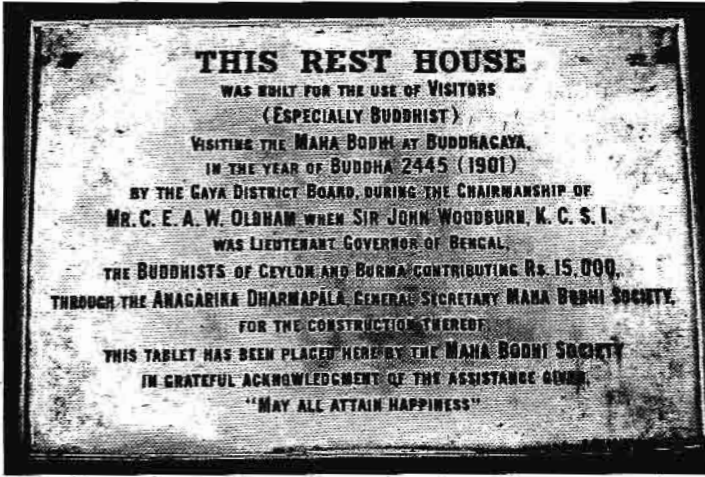 THIS REST HOUSE
WAS BUILT FOR THE USE OF VISITORS
(ESPECIALLY BUDDHIST)
VISITING THE MAHA BODHI AT BUDDHAGAYA,
IN THE YEAR OF BUDDHA 2445 (1901)
BY THE GAYA DISTRICT BOARD, DURING THE CHAIRMANSHIP OF
MR. C. E. A. W. OLDHAM WHEN SIR JOHN WOODBURN, K. C. S. I.
WAS LIEUTENANT GOVERNOR OF BENGAL,
THE BUDDHISTS OF CEYLON AND BURMA CONTRIBUTING RS. 15,000,
THROUGH THE ANAGARIKA DHARMAPALA GENERAL SECRETARY MAHA BODHI SOCIETY,
FOR THE CONSTRUCTION THEREOF,
THIS TABLET HAS BEEN PLACED HERE BY THE MAHA BODHI SOCIETY
IN GRATEFUL ACKNOWLEDGMENT OF THE ASSISTANCE GIVEN,
"MAY ALL ATTAIN HAPPINESS"